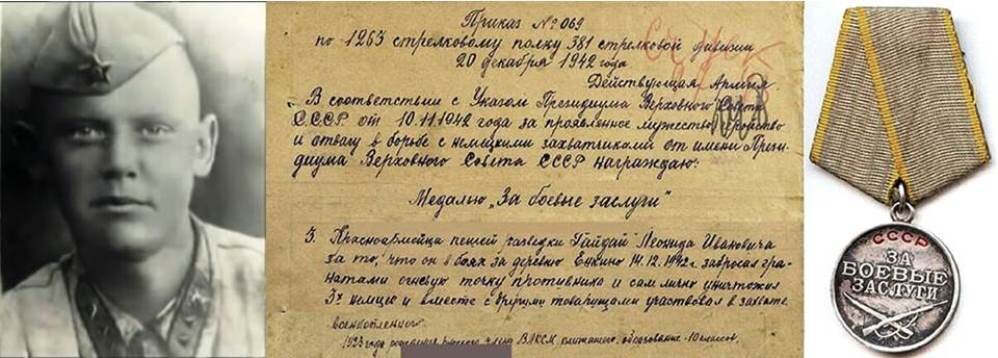 Приказ № 069
по 1263 стрелковому полку 381 стрелковой дивизии
20 декабря 1942 года
Действующая Армия
В соответствии с Указом Президиума Верховного Совета
СССР от 10.11.1942 года за проявленное мужество
и отвагу в борьбе с немецкими захватчиками от имени Прези-
диума Верховного Совета СССР награждаю:
Медалью „За боевые заслуги"
3. Красноармейца пешей разведки Гайдай Леонида Ивановича
за то, что он в боях за деревню Енкино 14.12.1942 г. забросал гра-
натами огневую точку противника и сам лично уничтожил
3х немцев и вместе с другими товарищами участвовал в захвате
военнопленного.
1923 года рождения член ВЛКСМ, образование - 10 классов,
СССР
ЗА
БОЕВЫЕ
ЗАСЛУГИ